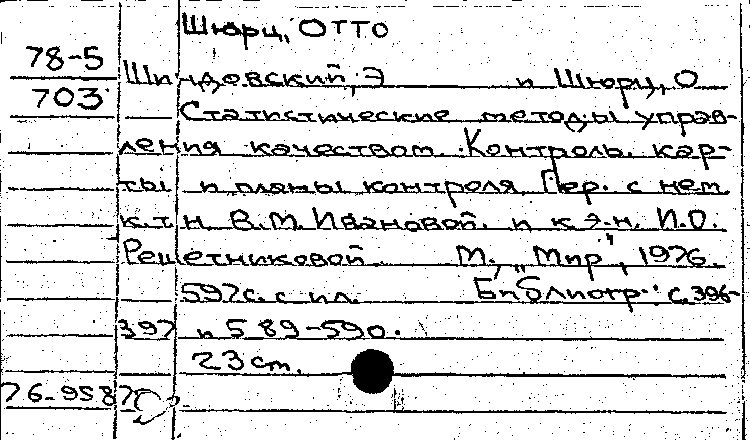 Шюрц, Отто
78-5
703
Шиндовский, Э и Шюрц, О
Статистические методы управ-
ления качеством. Контроль. кар-
ты и планы контроля. Пер. с нем.
к.т.н. В.М. Ивановой. и к.э.н. И.О.
Решетниковой. М., "Мир", 1976.
597с. с ил. Библиогр.: с. 396-
397 и 589-590.
23 см.
76-9587